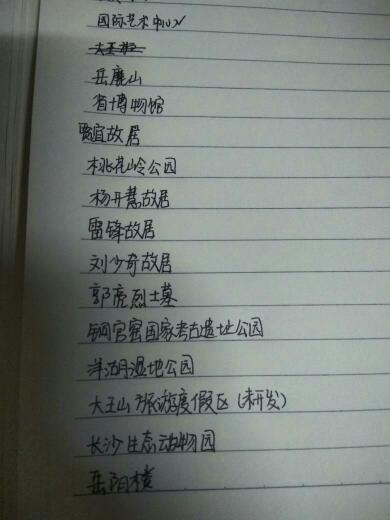 国际艺术中心
岳麓山
省博物馆
贾谊故居
桃花岭公园
杨开慧故居
雷锋故居
刘少奇故居
郭亮烈士墓
铜官窑国家考古遗址公园
洋湖湿地公园
大王山旅游度假区(未开发)
长沙生态动物园
岳阳楼